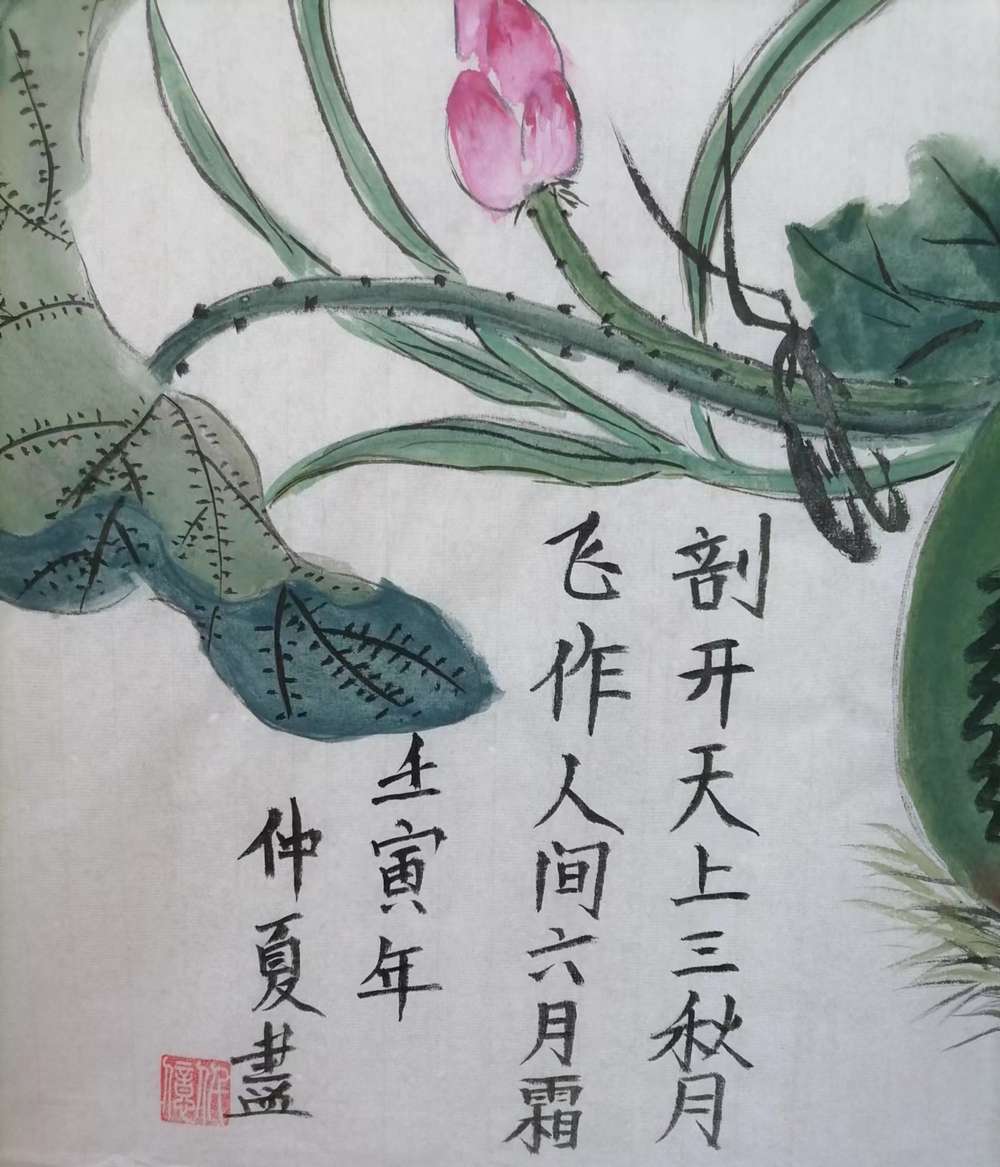 剖开天上三秋月
飞作人间六月霜
壬寅年
仲夏